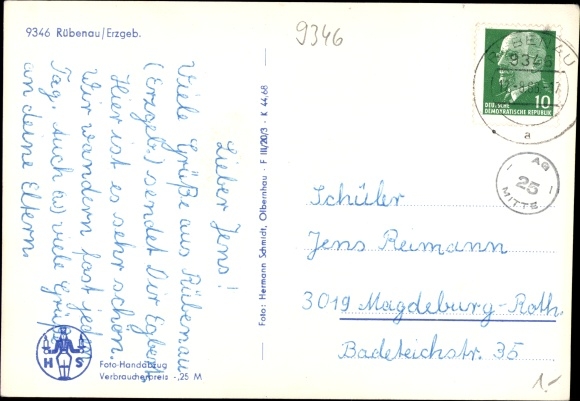 9346 Rübenau/Erzgeb.
9346
Lieber Jens!
Viele Grüße aus Rübenau
(Erzgeb.) sendet Dir Egbert.
Hier ist es sehr schön.
Wir wandern fast jeden
Tag. Auch viele Grüße
an deine Eltern.
H S
Foto-Handabzug
Verbraucherpreis -,25 M
Foto: Hermann Schmidt, Olbernhau · F III/20/3 · K 44.68
RÜBENAU
9346
a
DEUTSCHE
DEMOKRATISCHE REPUBLIK
10
AG
25
MITTE
Schüler
Jens Reimann
3019 Magdeburg-Roth.
Badeteichstr. 35
1.-